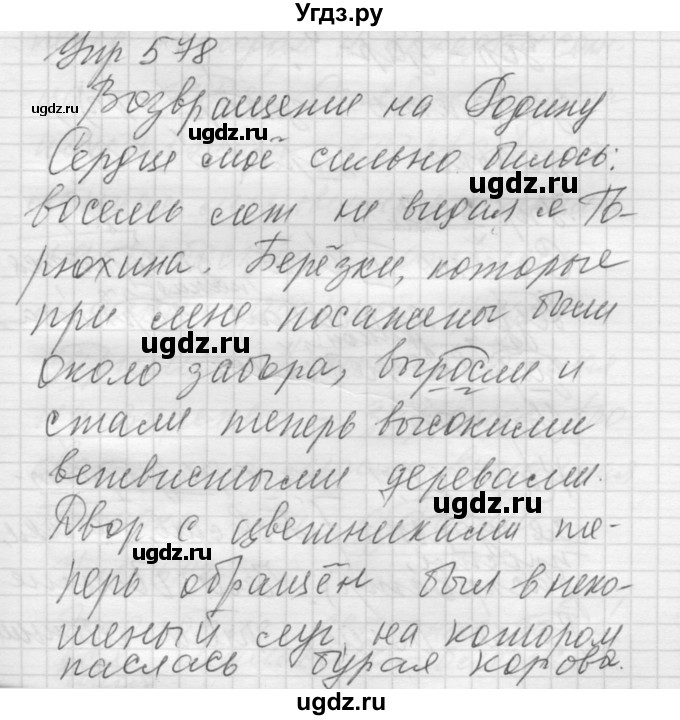 Угдз.ру
Упр 578
Возвращение на Родину
Сердце моё сильно билось:
восемь лет не видал я Го-
рюхина. Берёзки, которые
при мне посажены были
около забора, выросли и
стали теперь высокими
ветвистыми деревами.
Двор с цветниками те-
перь обращён был в неко-
шеный луг, на котором
паслась бурая корова.
ugdz.ru
ugdz.ru
ugdz.ru
ugdz.ru
ugdz.ru
ugdz.ru
ugdz.ru